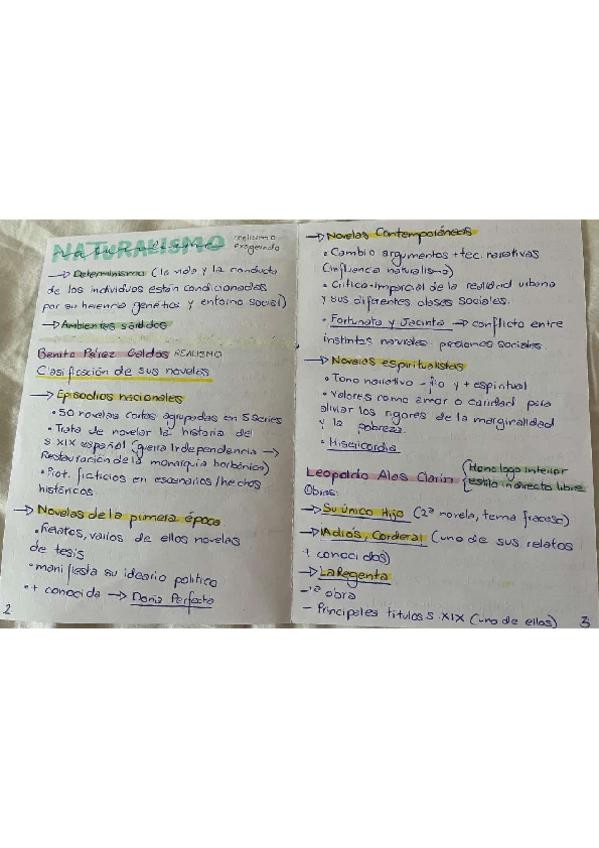 NATURALISMO realismo
exagerado
→ Determinismo (la vida y la conducta
de los individuos están condicionadas
por su herencia genética y entorno social)
→ Ambientes sórdidos
Benito Pérez Galdós REALISMO
Clasificación de sus novelas
→ Episodios nacionales
• 50 novelas cortas agrupadas en 5 series
• Trata de novelar la historia del
s XIX español (guerra Independencia →
Restauración de la monarquía borbónica)
• Prot. ficticios en escenarios/hechos
históricos
→ Novelas de la primera época
• Relatos, varios de ellos novelas
de tesis
• manifiesta su ideario político
• + conocida → Doña Perfecta
2
→ Novelas Contemporáneas
• Cambio argumentos + tec. narrativas
(influencia naturalismo)
• Crítica imparcial de la realidad urbana
y sus diferentes clases sociales.
• Fortunata y Jacinta → conflicto entre
instintos naturales. presiones sociales.
→ Novelas espiritualistas
• Tono narrativo - frío y + espiritual
• Valores como amor o caridad para
aliviar los rigores de la marginalidad
y la pobreza.
• Misericordia
Leopoldo Alas Clarín { Monólogo interior
estilo indirecto libre
Obras:
→ Su único Hijo (2ª novela, tema fracaso)
→ ¡Adiós, Cordera! (uno de sus relatos
+ conocidos)
→ La Regenta
- 1ª obra
- Principales títulos s. XIX (uno de ellos)
3